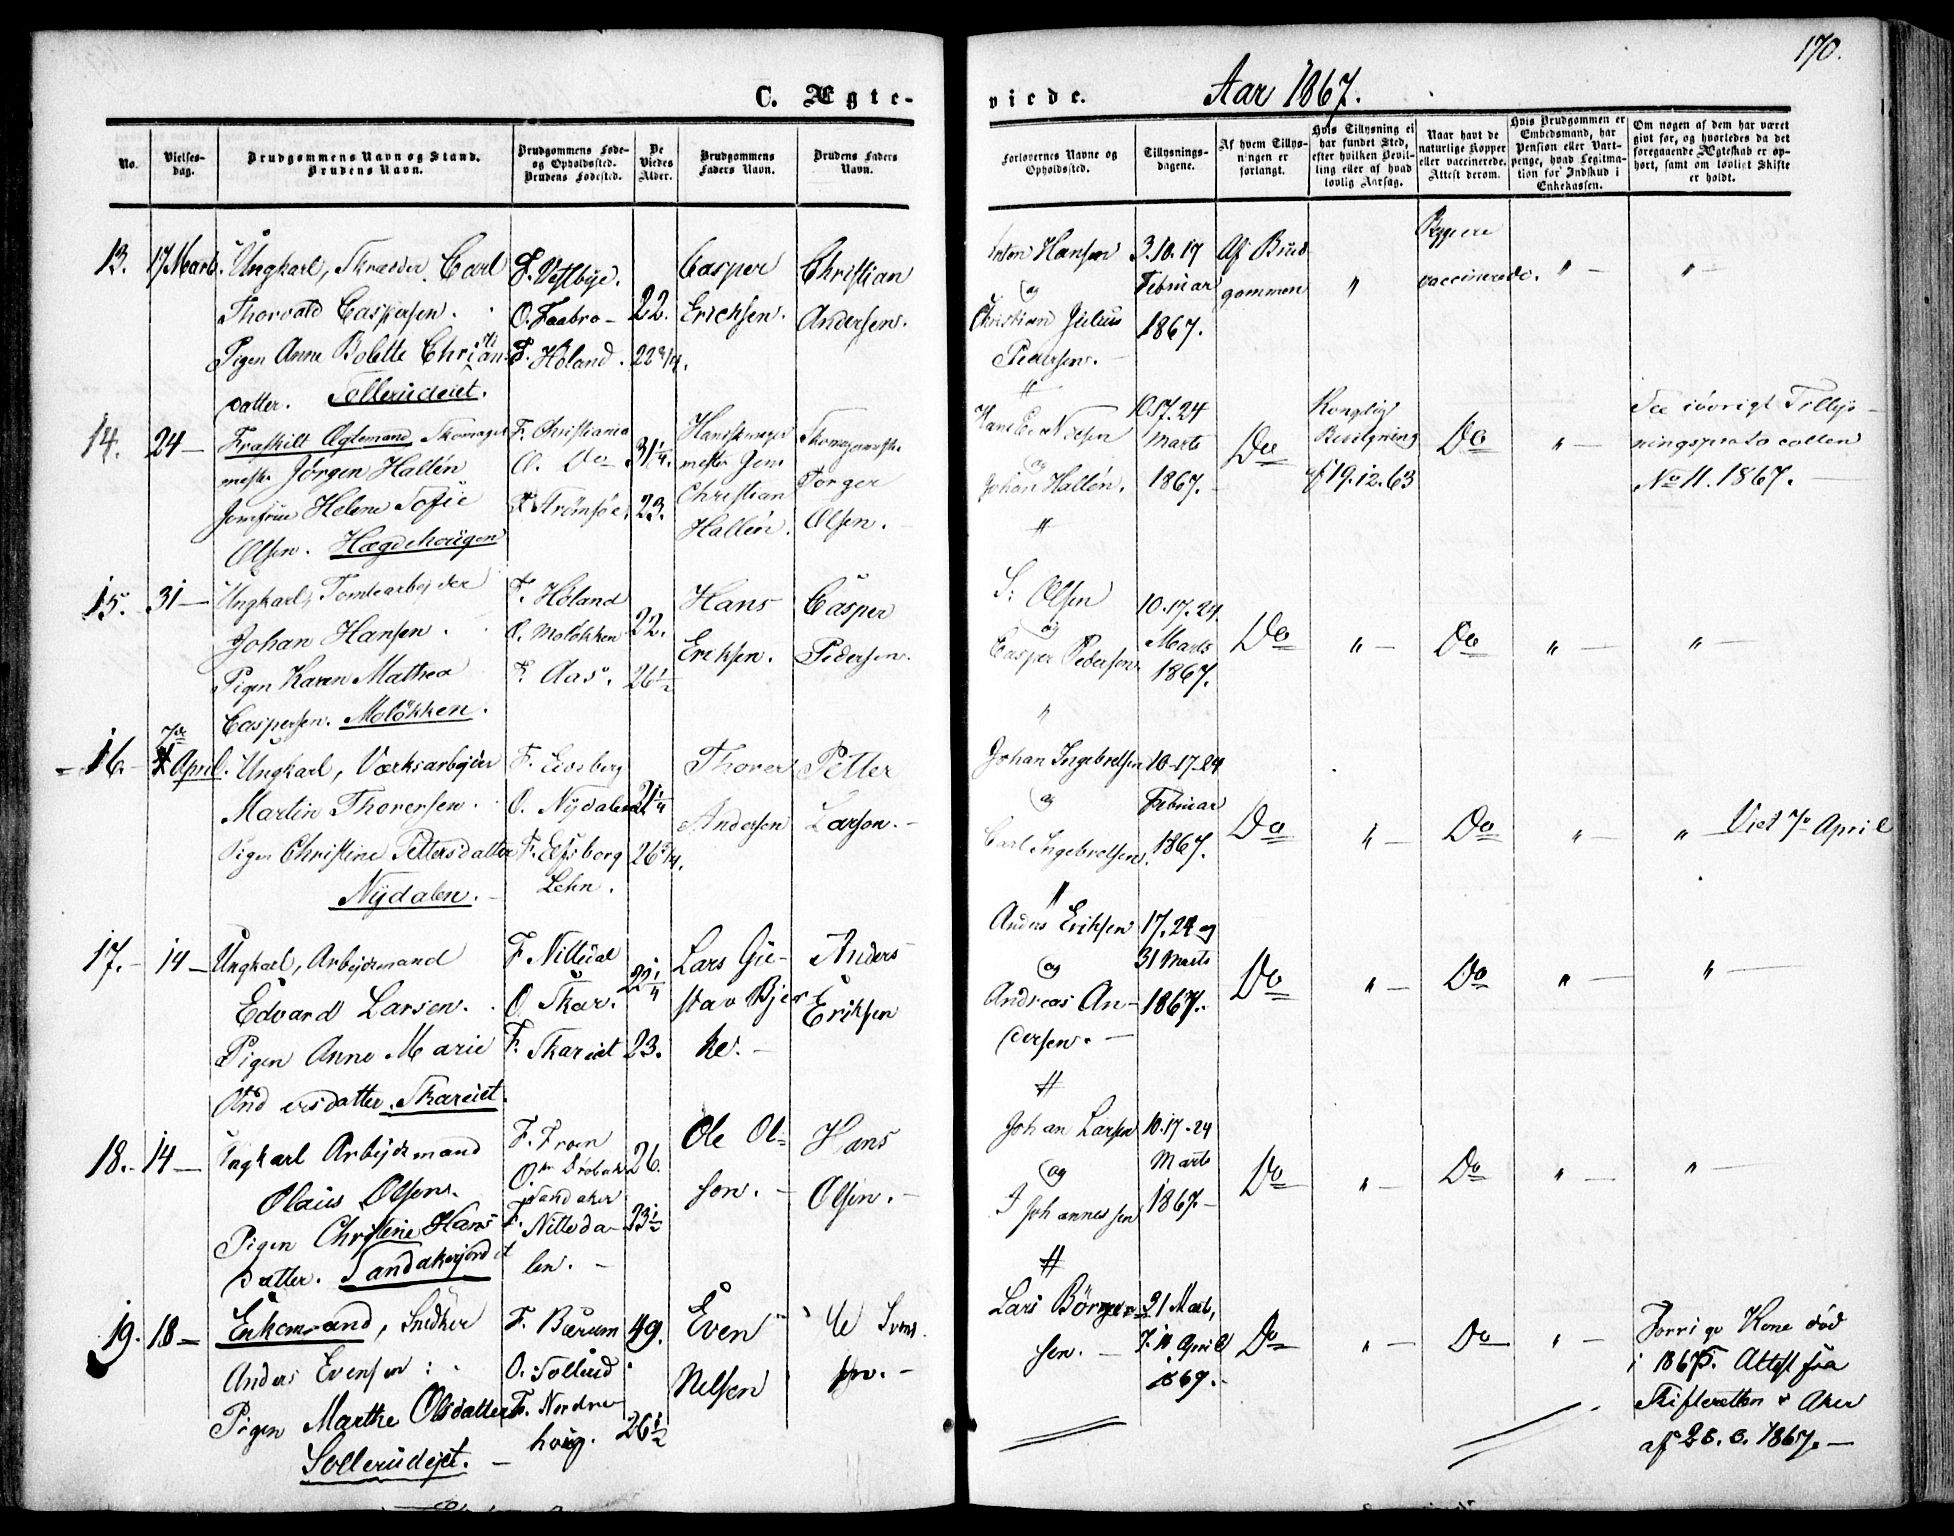 C. Ægte-
No.
Vielses-
dag.
Brudgommens Navn og Stand.
Brudens Navn.
Brudgommens Føde-
og Opholdssted.
Brudens Fødested.
De
Viedes
Alder.
Brudgommens
Faders Navn.
Brudens Faders
Navn.
13.
17 Marts.
Ungkarl, Skrædder Carl
Thorvald Caspersen.
Pigen Anne Bolette Christian-
datter. Sollerudeiet.
F. Vestbye.
O. Faabro
F. Høland.
22.
22 3/4.
Casper
Erichsen.
Christian
Andersen.
14.
24
Fraskilt Ægtemand Skomager
mester Jørgen Hallén
Jomfrue Helene Sofie
Olsen. Hægdehaugen
F. Christiania
O. Do
F. Strømsøe.
31 1/4.
23.
mester Jens
Christian
Hallén.
Torger
Olsen.
15.
31
Ungkarl, Tomtearbejder
Johan Hansen.
Pigen Karen Mathea
Caspersen. Moløkken.
F. Høland
O. Moløkken
F. Aas.
22.
26 1/2
Hans
Eriksen.
Casper
Pedersen.
16.
7de
April.
Ungkarl, Værksarbejder
Martin Thoresen.
Pigen Christine Pettersdatter
Nydalen.
F. Eidsberg
O. Nydalen
F. Elfsborg
Lehn.
21 1/4
26 3/4.
Thorer
Andersen
Petter
Larson.
17.
14
Ungkarl, Arbejdsmand
Edvard Larsen.
Pigen Anne Marie
Andersdatter. Skareiet.
F. Nittedal
O. Skar.
F. Skareiet
22 1/4
23.
Lars Gu-
stav Bjer
ke.
Anders
Eriksen
18.
14
Ungkarl Arbejdsmand
Olaus Olsen.
Pigen Christine Hans
datter. Sandakerjordet
F. Froen
pr Drøbak
O. Sandaker
F. Nitteda-
len.
26.
23 1/2
Ole Ol-
sen.
Hans
Olsen.
19.
18
Enkemand, Snedker
Anders Evensen
Pigen Marthe Olsdatter
Sollerudejet.
F. Bærum
O. Sollerud
F. Nordre
houg.
49.
26 1/2
Even
Nilsen
Ole Svend
sen.
170.
viede.
Aar 1867.
Forlovernes Navne og
Opholdssted.
Tillysnings-
dagene.
Af hvem Tillys-
ningen er
forlangt.
Hvis Tillysning ei
har fundet Sted,
efter hvilken Bevil-
ling eller af hvad
lovlig Aarsag.
Naar havt de
naturlige Kopper
eller vaccinerede.
Attest derom.
Hvis Brudgommen er
Embedsmand, har
Pension eller Vart-
penge, hvad Legitima-
tion for Indskud i
Enkekassen.
Om nogen af dem har været
givt før, og hvorledes da det
foregaaende Ægteskab er op-
hørt, samt om lovligt Skifte
er holdt.
Anton Hansen
og
Christian Julius
Pedersen.
3. 10. 17
Februar
1867.
Af Brud
gommen
"
Begge
vaccinerede.
"
"
Johan Hallén.
10. 17. 24
Marts
1867.
Do
Kongelig
Bevilgning
af 19. 12. 63
Do
"
See iøvrigt Tillys-
ningsprotocollen
No 11. 1867.
S. Olsen
og
Casper Pedersen
10. 17. 24
Marts
1867.
Do
"
Do
"
"
Johan Ingebretsen
og
Carl Ingebretsen.
10-17-24
Februar
1867.
Do
"
Do
"
" Viet 7de April
Anders Eriksen
og
Andreas An-
dersen.
17. 24 og
31 Marts
1867.
Do
"
Do
"
"
Johan Larsen
og
I Johannessen
10-17-24
Marts
1867
Do
"
Do
"
"
Lars Børger-
sen.
31 Mart,
Do
"
Do
"
Forrige Kone død
Attest fra
Skifteretten i Aker